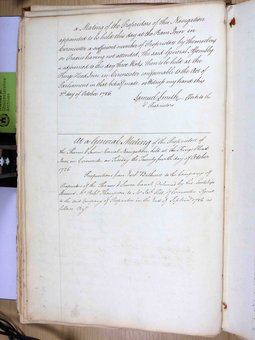 a Meeting of the Proprietors of this Navigation
appointed to be held this day at the Ram Inn in
Cirencester a sufficient number of Proprietors by themselves
or Proxies having not attended, the said General Assembly
is adjourned to this day three Weeks, then to be held at the
Kings Head Inn in Cirencester conformable to the Act of
Parliament in that behalf made. as Witness my hand this
3d day of October 1786
Samuel Smith Clerk to the
sd Proprietors
At a General Meeting of the Proprietors of
the Thames & Severn Canal Navigation, held at the Kings Head
Inn in Cirencester on Tuesday the Twenty fourth day of October
1786
Proposition from Lord Bathurst to the Company of
Proprietors of the Thames & Severn Canal delivered by his Lordship
to the said Company of Proprietors in the of Septemr 1786 as
follows